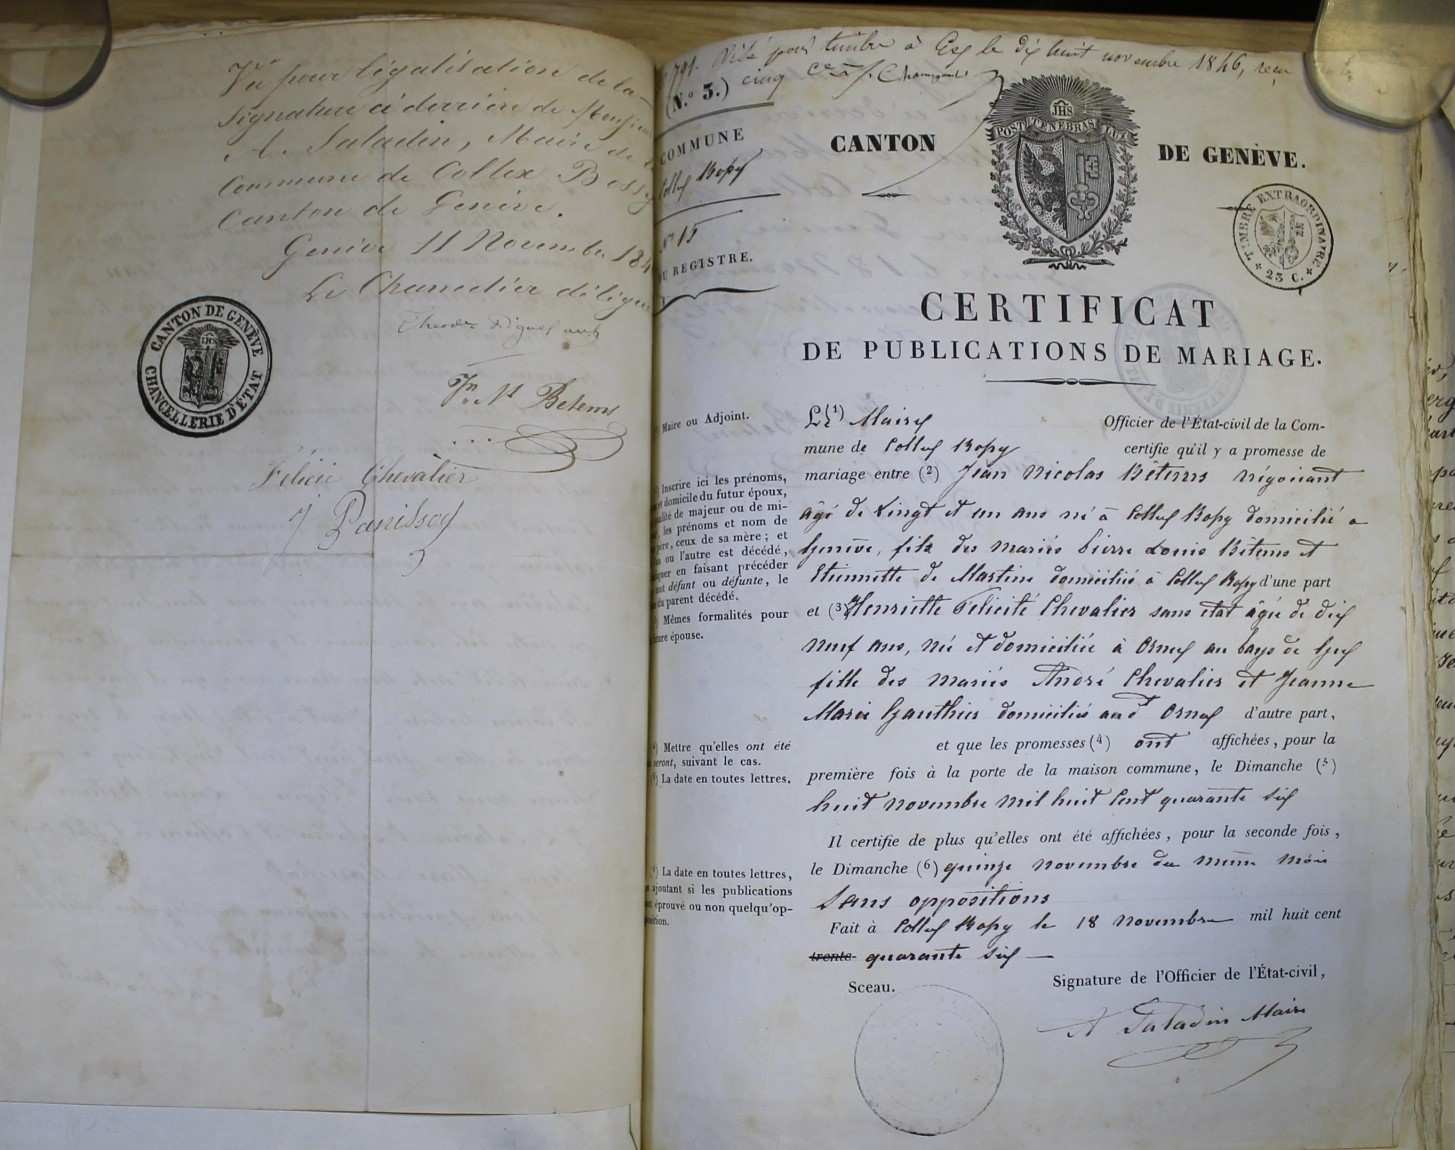 Vu pour légalisation de la
signature ci derrière de Monsieur
A. Saladin, Maire de la
Commune de Collex Bossy
Canton de Genève.
Genève 11 Novembre 184
Le Chancelier délégué
CANTON DE GENÈVE
CHANCELLERIE D'ETAT
Jn Ns Betems
Félicie Chevalier
J Panissod
791. Visé pour timbre à Gex le dix huit novembre 1846, reçu
cinq
(N.º 3.)
COMMUNE
Collex Bossy
Nº 15
DU REGISTRE.
CANTON DE GENÈVE.
JHS
POST TENEBRAS LUX
TIMBRE EXTRAORDINAIRE
25 C.
CERTIFICAT
DE PUBLICATIONS DE MARIAGE.
Maire ou Adjoint.
Le (1) Maire Officier de l'État-civil de la Com-
mune de Collex Bossy certifie qu'il y a promesse de
mariage entre (2) Jean Nicolas Bétems négociant
âgé de vingt et un ans né à Collex Bossy domicilié à
Genève, fils des mariés Pierre Louis Bétems et
Etiennette de Martine domiciliés à Collex Bossy d'une part
et (3) Henriette Félicité Chevalier sans état âgée de dix
neuf ans, née et domiciliée à Ornex au pays de Gex
fille des mariés André Chevalier et Jeanne
Marie Gauthier domiciliés aud't Ornex d'autre part,
et que les promesses (4) ont affichées, pour la
première fois à la porte de la maison commune, le Dimanche (5)
huit novembre mil huit cent quarante six
Il certifie de plus qu'elles ont été affichées, pour la seconde fois,
le Dimanche (6) quinze novembre du même mois
sans oppositions
Fait à Collex Bossy le 18 novembre mil huit cent
trente quarante six
Sceau. Signature de l'Officier de l'État-civil,
A Saladin Maire
Inscrire ici les prénoms,
domicile du futur époux,
qualité de majeur ou de mi-
les prénoms et nom de
père, ceux de sa mère; et
un ou l'autre est décédé,
en faisant précéder
défunt ou défunte, le
du parent décédé.
Mêmes formalités pour
épouse.
Mettre qu'elles ont été
seront, suivant le cas.
La date en toutes lettres.
La date en toutes lettres,
ajoutant si les publications
ont éprouvé ou non quelqu'op-
position.